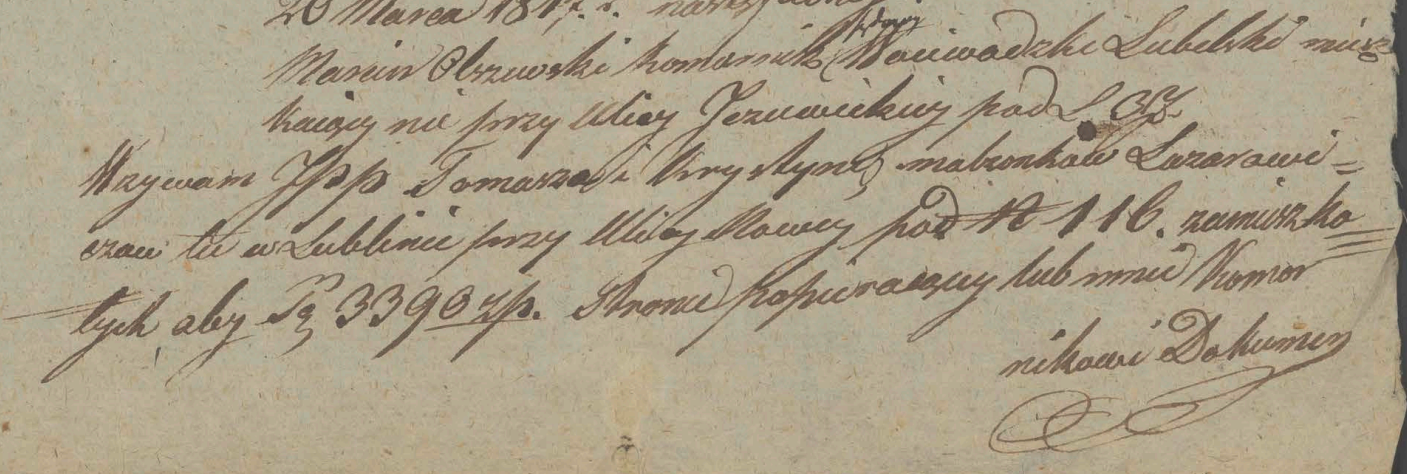 20 Marca 1817. r.
Marcin Olszewski Komornik Sądowy Woiewodzki Lubelski miesz
kaiący na przy Ulicy Jezuickiey pod L. 37.
Wzywam JPP Tomasza i Krystynę małżonków Lazarowi=
czow tu w Lublinie przy Ulicy Nowey pod N 116. zamieszka=
łych, aby Sę 3390 zp. Stronie popieraiącey lub mnie Komor
nikowi Dokumen